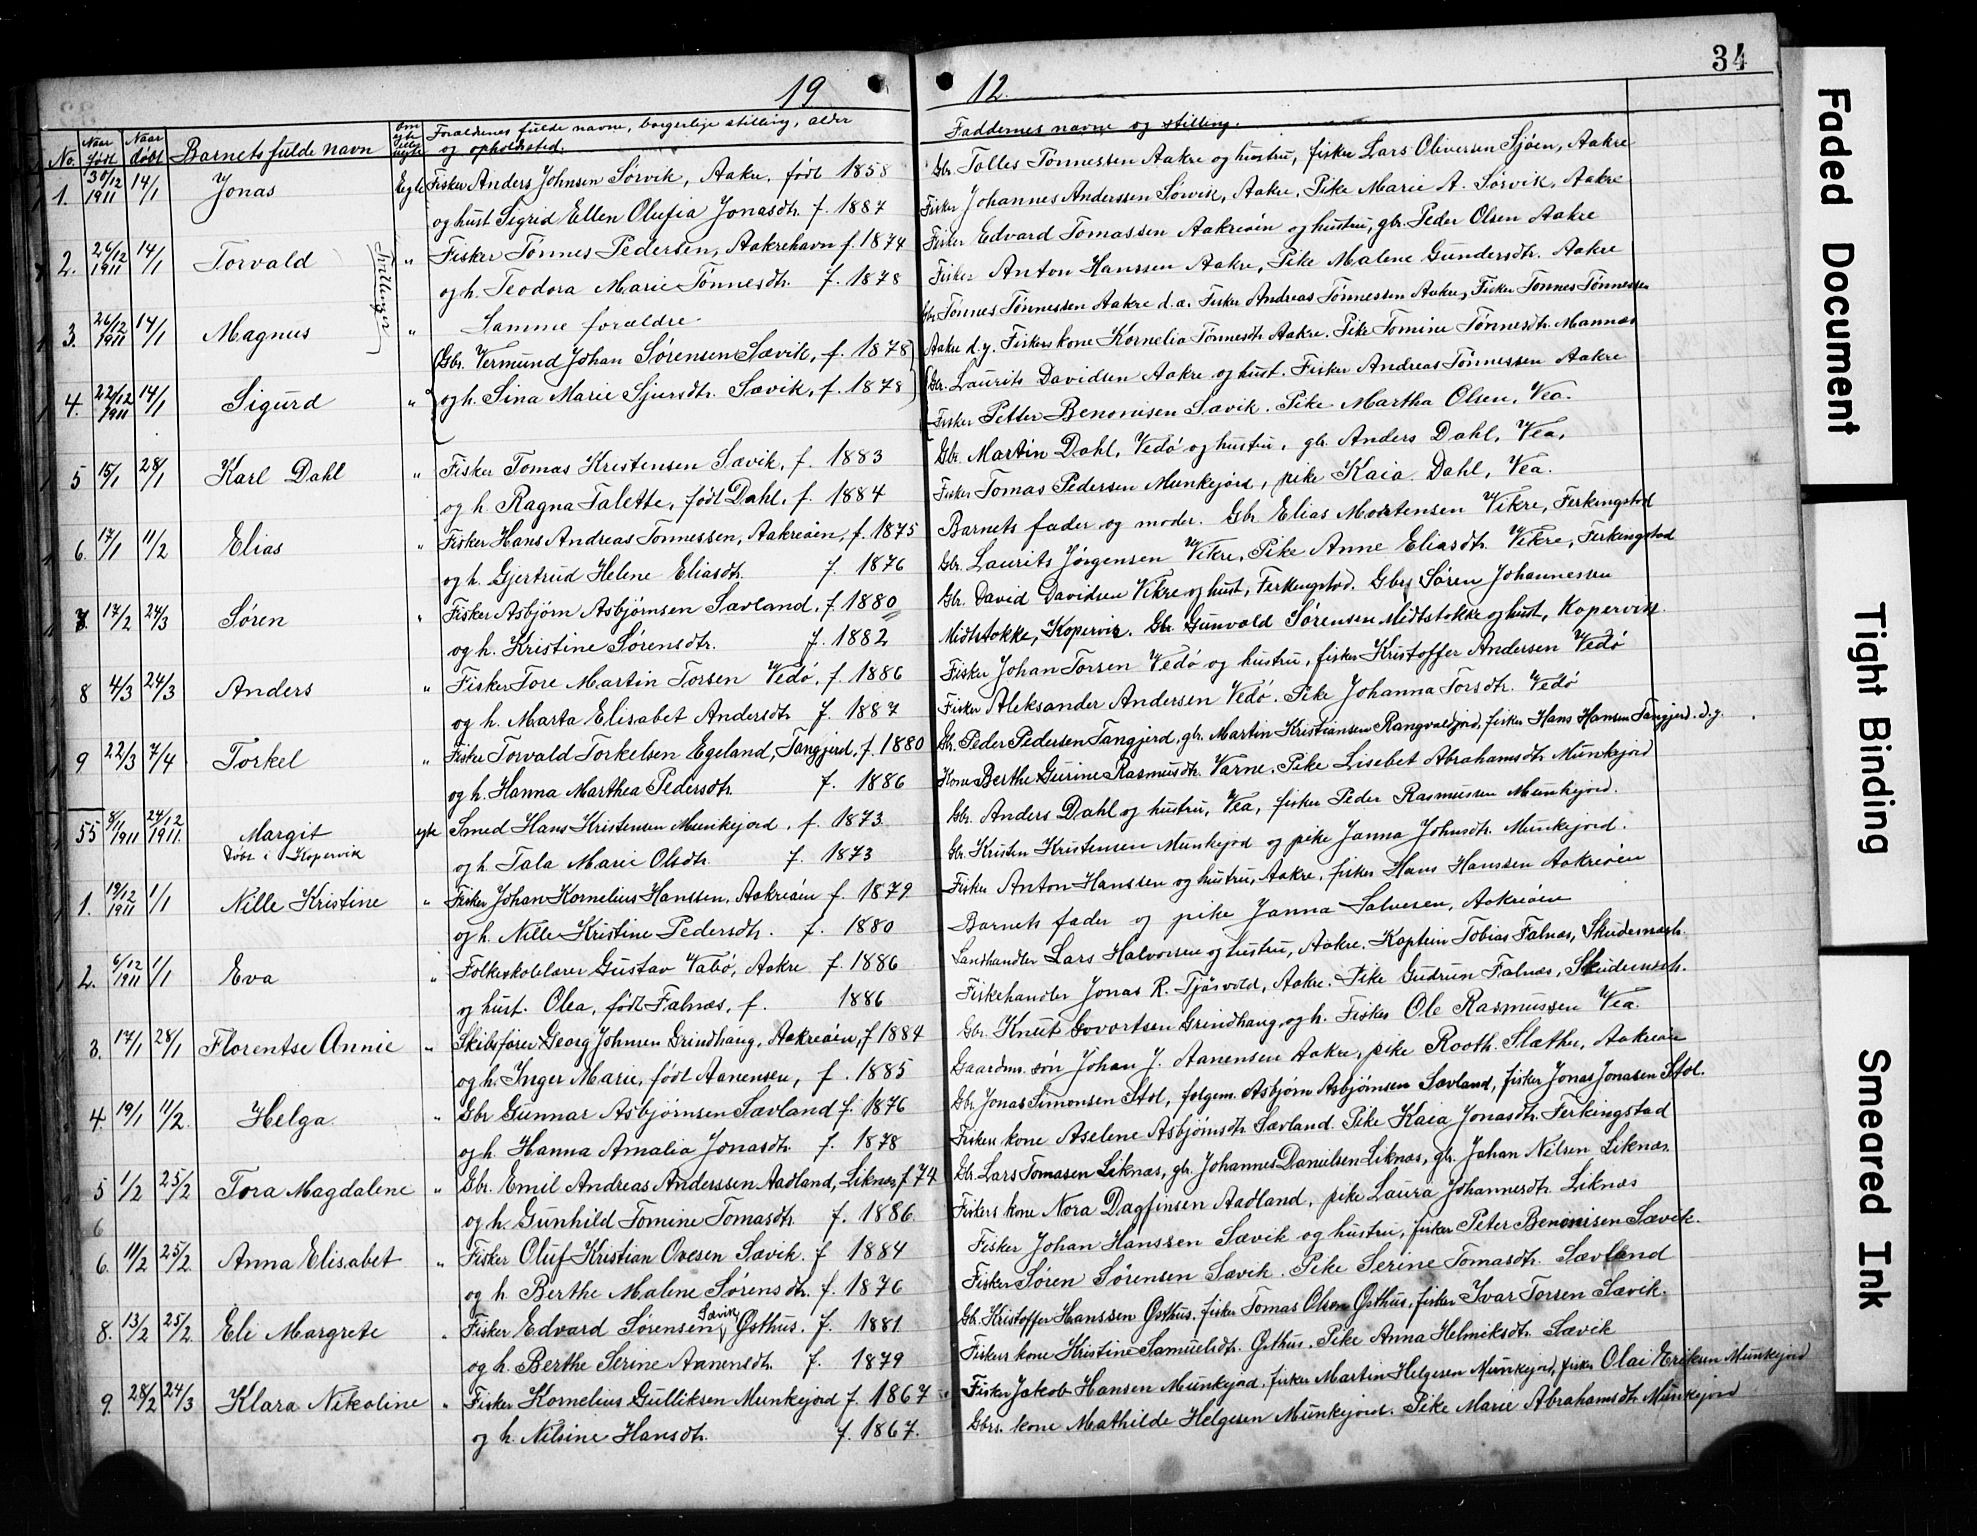 34
19 12.
No. Naar født Naar døbt Barnets fulde navn Om egte eller uegte Forældrenes fulde navne, borgerlige stilling, alder og opholdssted. Faddernes navne og stilling.
1. 30/12 1911 14/1 Jonas Egte Fisker Anders Johnsen Sørvik, Aakre, født 1858 Gbr. Tolles Tønnessen Aakre og hustru, fisker Lars Oliversen Sjøen, Aakre
og hust Sigrid Ellen Olufia Jonasdtr. f. 1887 Fisker Johannes Anderssen Sørvik, Aakre, Pike Marie A. Sørvik, Aakre
2. 26/12 1911 14/1 Torvald " Fisker Tønnes Pedersen, Aakrehavn f. 1874 Fisker Edvard Tomassen Aakreøen og hustru, gbr. Peder Olsen Aakre
Tvillinger
og h. Teodora Marie Tønnesdtr. f. 1878 Fisker Anton Hanssen Aakre, Pike Malene Gundersdtr. Aakre
3. 26/12 1911 14/1 Magnus " Samme forældre Gbr Tønnes Tønnessen Aakre d.æ. Fisker Andreas Tønnessen Aakre, Fisker Tønnes Tønnessen
Aakre d.y. Fiskers kone Kornelia Tønnesdtr Aakre. Pike Tomine Tønnesdtr. Mannæs
4. 22/12 1911 14/1 Sigurd " Gbr. Vermund Johan Sørensen Sævik, f. 1878 Gbr. Laurits Davidsen Aakre og hust. Fisker Andreas Tønnessen Aakre
og h. Sina Marie Sjursdtr. Sævik, f. 1878 Fisker Petter Benonisen Sævik. Pike Martha Olsen, Vea.
5 15/1 28/1 Karl Dahl " Fisker Tomas Kristensen Sævik, f. 1883 Gbr. Martin Dahl, Vedø og hustru, gbr. Anders Dahl, Vea,
og h. Ragna Talette, født Dahl, f. 1884 Fisker Tomas Pedersen Munkejord, pike Kaia Dahl, Vea.
6. 17/1 11/2 Elias " Fisker Hans Andreas Tønnessen, Aakreøen, f. 1875 Barnets fader og moder. Gbr Elias Mortensen Vikre, Ferkingstad
og h. Gjertrud Helene Eliasdtr. f. 1876 Gbr. Laurits Jørgensen Vikre, Pike Anne Eliasdtr. Vikre, Ferkingstad
7. 17/2 24/3 Søren " Fisker Asbjørn Asbjørnsen Sævland, f. 1880 Gbr. David Davidsen Vikre og hust, Ferkingstad. Gbr Søren Johannessen
og h. Kristine Sørensdtr. f. 1882 Midtstokke, Kopervik. Gbr. Gunvald Sørensen Midtstokke og hust, Kopervik.
8 4/3 24/3 Anders " Fisker Tore Martin Torsen Vedø, f. 1886 Fisker Johan Torsen Vedø og hustru, fisker Kristoffer Andersen Vedø
og h. Marta Elisabet Andersdtr f. 1887 Fisker Aleksander Andersen Vedø. Pike Johanna Torsdtr. Vedø
9 22/3 7/4 Torkel " Fisker Torvald Torkelsen Egeland, Tangjerd, f. 1880 Gbr. Peder Pedersen Tangjerd, gbr. Martin Kristiansen Rangvaldjord, fisker Hans Hansen Tangjerd. d.y.
og h. Hanna Marthea Pedersdtr f. 1886 Kone Berthe Gurine Rasmusdtr. Varne. Pike Lisebet Abrahamsdtr. Munkejord
55 8/11 1911 24/12 1911. Margit egte Smed Hans Kristensen Munkejord, f. 1873 Gbr. Anders Dahl og hustru, Vea, fisker Peder Rasmussen Munkejord.
Døbt i Kopervik og h Tala Marie Olsdtr. f. 1873 Gbr. Kristen Kristensen Munkejord og pike Janna Johnsdtr. Munkejord.
1. 19/12 1911 1/1 Nille Kristine " Fisker Johan Kornelius Hanssen, Aakreøen f. 1879 Fisker Anton Hanssen og hustru, Aakre, fisker Hans Hanssen Aakreøen
og h. Nille Kristine Pedersdtr. f. 1880 Barnets fader og pike Janna Salvesen, Aakreøen
2. 6/12 1911 1/1 Eva " Folkeskolelærer Gustav Vabø, Aakre f. 1886 Landhandler Lars Halvorsen og hustru, Aakre. Kaptein Tobias Falnæs, Skudenæsh.
og hust. Olea, født Falnæs, f. 1886 Fiskehandler Jonas R. Tjøsvold, Aakre. Pike Gudrun Falnæs, Skudenæsh.
3. 17/1 28/1 Florentse Annie " Skibsfører Georg Johnsen Grindhaug, Aakreøen, f 1884 Gbr. Knut Govortsen Grindhaug og h. Fisker Ole Rasmussen Vea.
og h. Inger Marie, født Aanensen, f. 1885 Gaardm. søn Johan J. Aanensen Aakre, pike Rooth. Aakreøen
4 19/1 11/2. Helga " Gbr Gunnar Asbjørnsen Sævland f. 1876 Gbr Jonas Simonsen Stol, følgem. Asbjørn Asbjørnsen Sævland, fisker Jonas Jonasen Stol.
og h. Hanna Amalia Jonasdtr. f. 1878 Fiskers kone Aselene Asbjørnsdtr Sævland. Pike Kaia Jonasdtr. Ferkingstad
5 1/2 25/2 Tora Magdalene " Gbr. Emil Andreas Anderssen Aadland, Liknæs f 74 Gbr. Lars Tomasen Liknæs, gbr. Johannes Danielsen Liknæs, gbr. Johan Nilsen Liknæs.
6 og h. Gunhild Tomine Tomasdtr. f. 1886. Fiskers kone Nora Dagfinsen Aadland, pike Laura Johannesdtr. Liknæs
6. 11/2 25/2. Anna Elisabet " Fisker Oluf Kristian Ovesen Sævik. f 1884 Fisker Johan Hanssen Sævik og hustru, fisker Peter Benonisen Sævik.
og h. Berthe Malene Sørensdtr. f. 1876 Fisker Søren Sørensen Sævik. Pike Serine Tomasdtr. Sævland
8. 13/2 25/2. Eli Margrete " Fisker Edvard Sørensen Sævik Østhus. f. 1881. Gbr. Kristoffer Hanssen Østhus. fisker Tomas Olsen Østhus, fisker Ivar Torsen Sævik.
og h. Berthe Serine Aanensdtr. f. 1879 Fiskers kone Kristine Samuelsdtr. Østhus. Pike Anna Helmiksdtr. Sævik
9. 28/2 24/3 Klara Nikoline " Fisker Kornelius Gulliksen Munkejord f. 1867 Fisker Jakob Hansen Munkejord, fisker Martin Helgesen Munkejord, fisker Olai Eriksen Munkejord
og h. Nilsine Hansdtr. f. 1867. Gbrs. kone Mathilde Helgesen Munkejord. Pike Marie Abrahamsdtr. Munkejord
Faded Document
Tight Binding
Smeared Ink